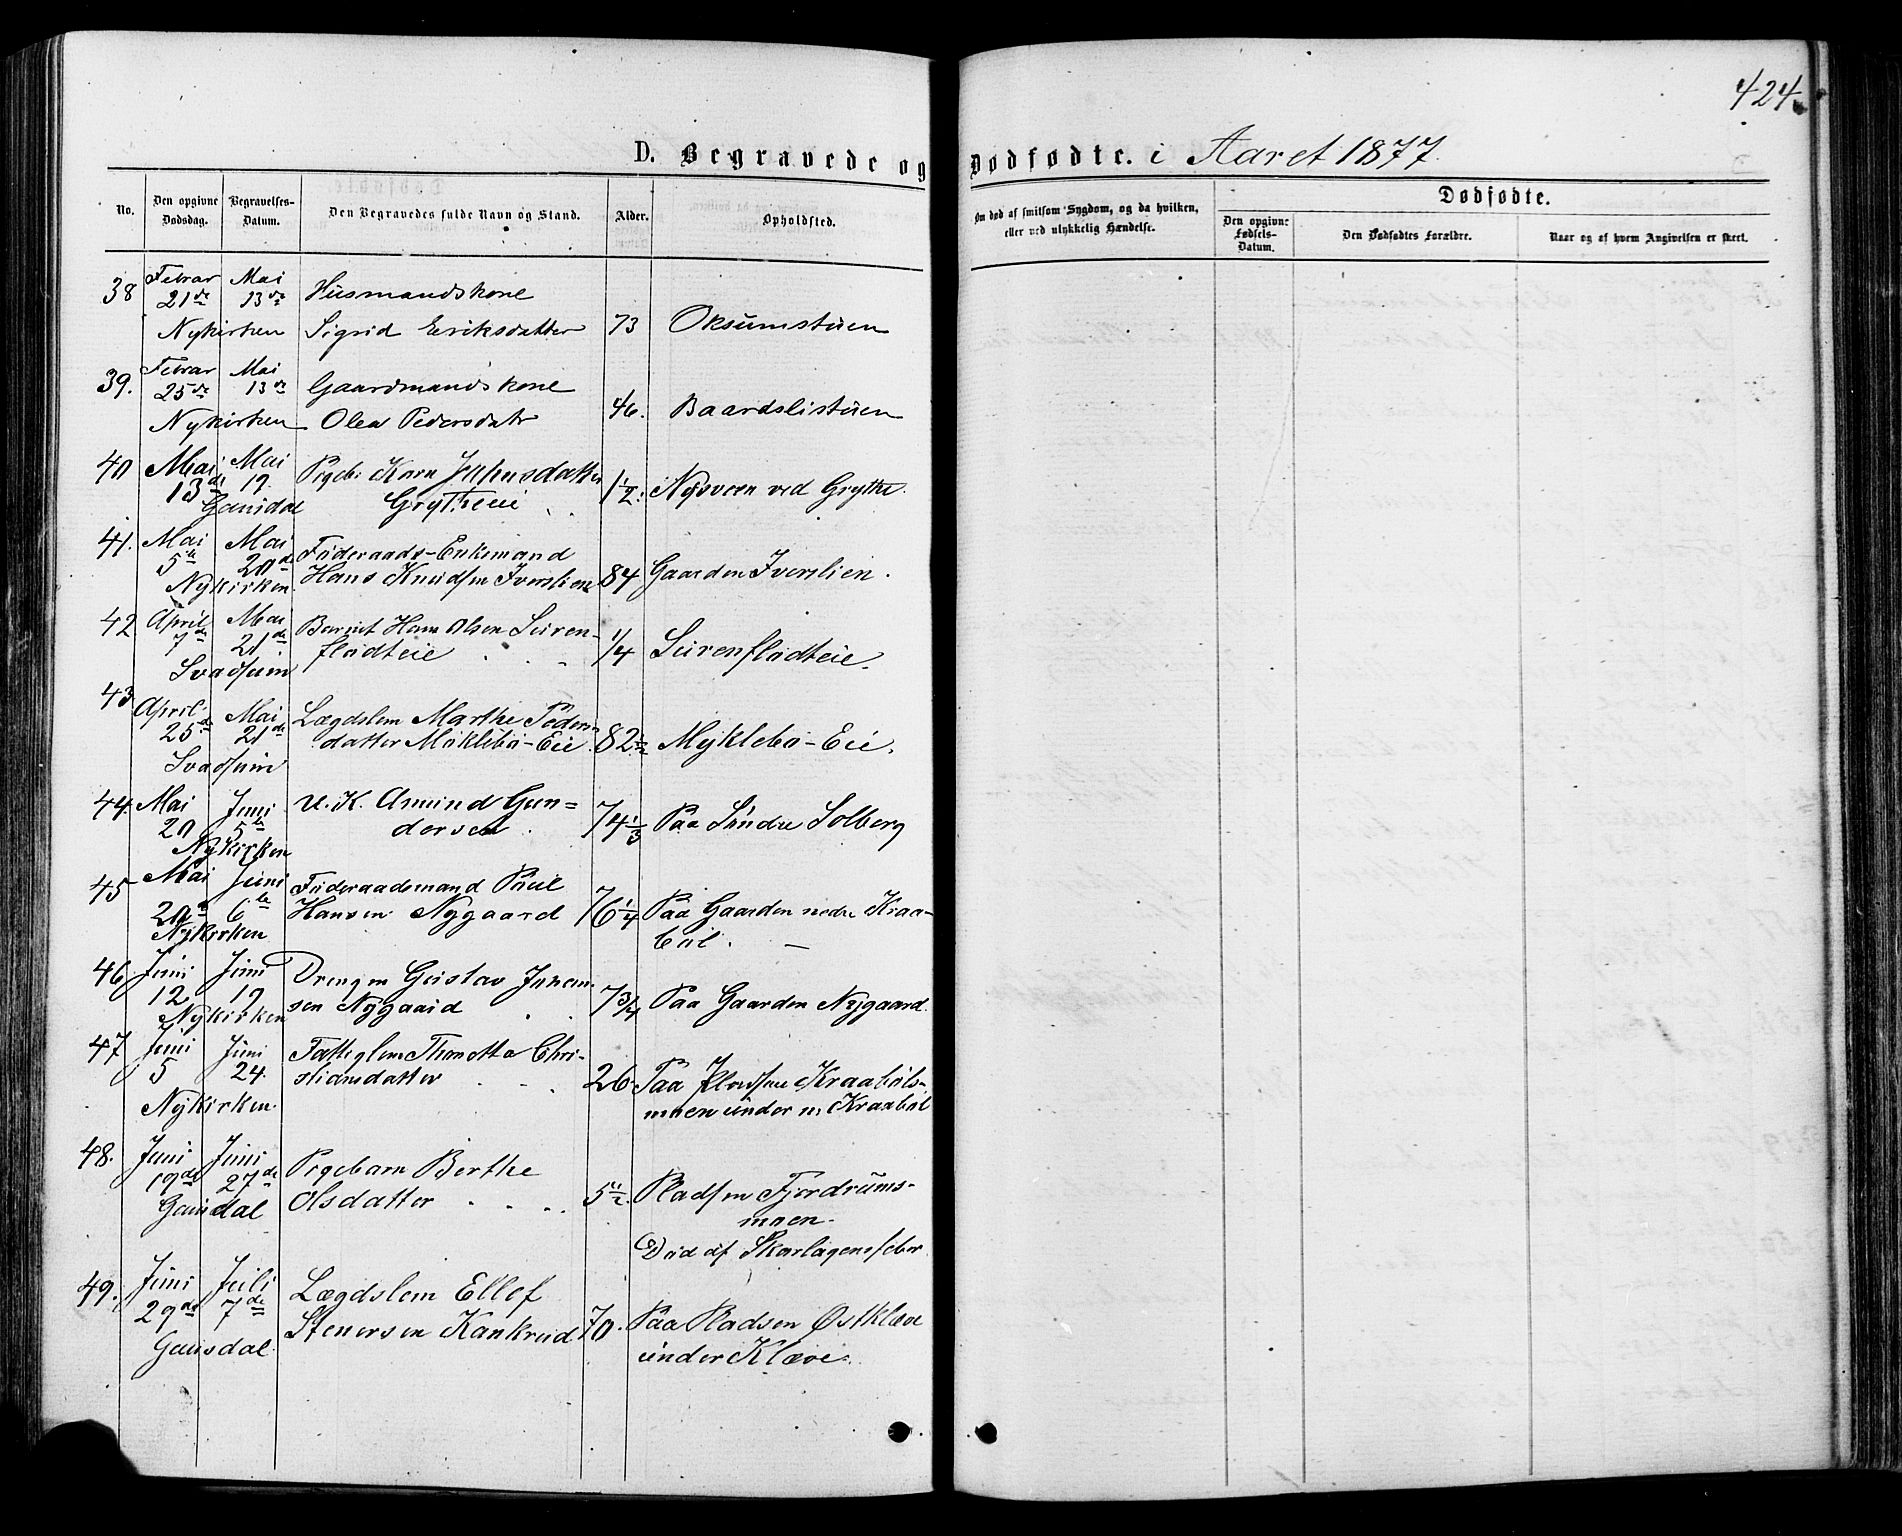 424.
D. Begravede og Dødfødte. i Aaret 1877.
No.
Den opgivne Dødsdag.
Begravelses-Datum.
Den Begravedes fulde Navn og Stand.
Alder.
Opholdsted.
Om død af smitsom Sygdom, og da hvilken, eller ved ulykkelig Hændelse.
Dødfødte.
Den opgivne Fødsels-Datum.
Den Dødfødtes Forældre.
Naar og af hvem Angivelsen er skeet.
38 Februar 21de Mai 13de Husmandskone
Nykirken Sigrid Eeriksdatter 73 Oksumstuen
39. Februar 25de Mai 13de Gaardmandskone
Nykirken Olea Pedersdatr 46. Baardslistuen
40 Mai 13de Mai 19. Pigeb: Karn Juhnsdatter
Gausdal Grytheeie 1½. Nysveen ved Grythe.
41. Mai 5te Mai 20de Føderaads-Enkemand
Nykirken Hans Knudsen Iverslien 84 Gaarden Iverslien.
42 April 7de Mai 21de Barnet Hans Olsen Seiren-
Svadsum flødteie 1/4 Seirenflødteie.
43 April 25de Mai 21de Lægdslem Marthe Peders-
datter Møklebø-Eie 82½ Myklebø-Eie.
Svadsum
44. Mai 20 Juni 5te U. K. Amund Gun=
dersen. 74⅓ Paa Søndre Solberg
Nykirken
45 Mai 29de Juni 6te Føderaadsmand Paul
Hansen Nygaard 76¼ Paa Gaarden nedre Kraa-
Nykirken bøl.
46 Juni 12 Juni 19 Drengen Gustav Johan-
sen Nygaard 7¾ Paa Gaarden Nygaard.
Nykirken
47 Juni 5 Juni 24. Fattiglem Thonetta Chri-
stiansdatter 26. Paa Pladsen Kraabøls-
Nykirken. moen under n. Kraabøl
48. Juni 19de Juni 27de Pigebarn Berthe
Gausdal Olsdatter 5½. Pladsen Fjordrums-
moen.
Død af Skarlagensfeber
49. Juni 29de Juli 7de Lægdslem Ellef
Stenersen Kankrud 70. Paa Pladsen Østklæve
Gausdal under Klæve.